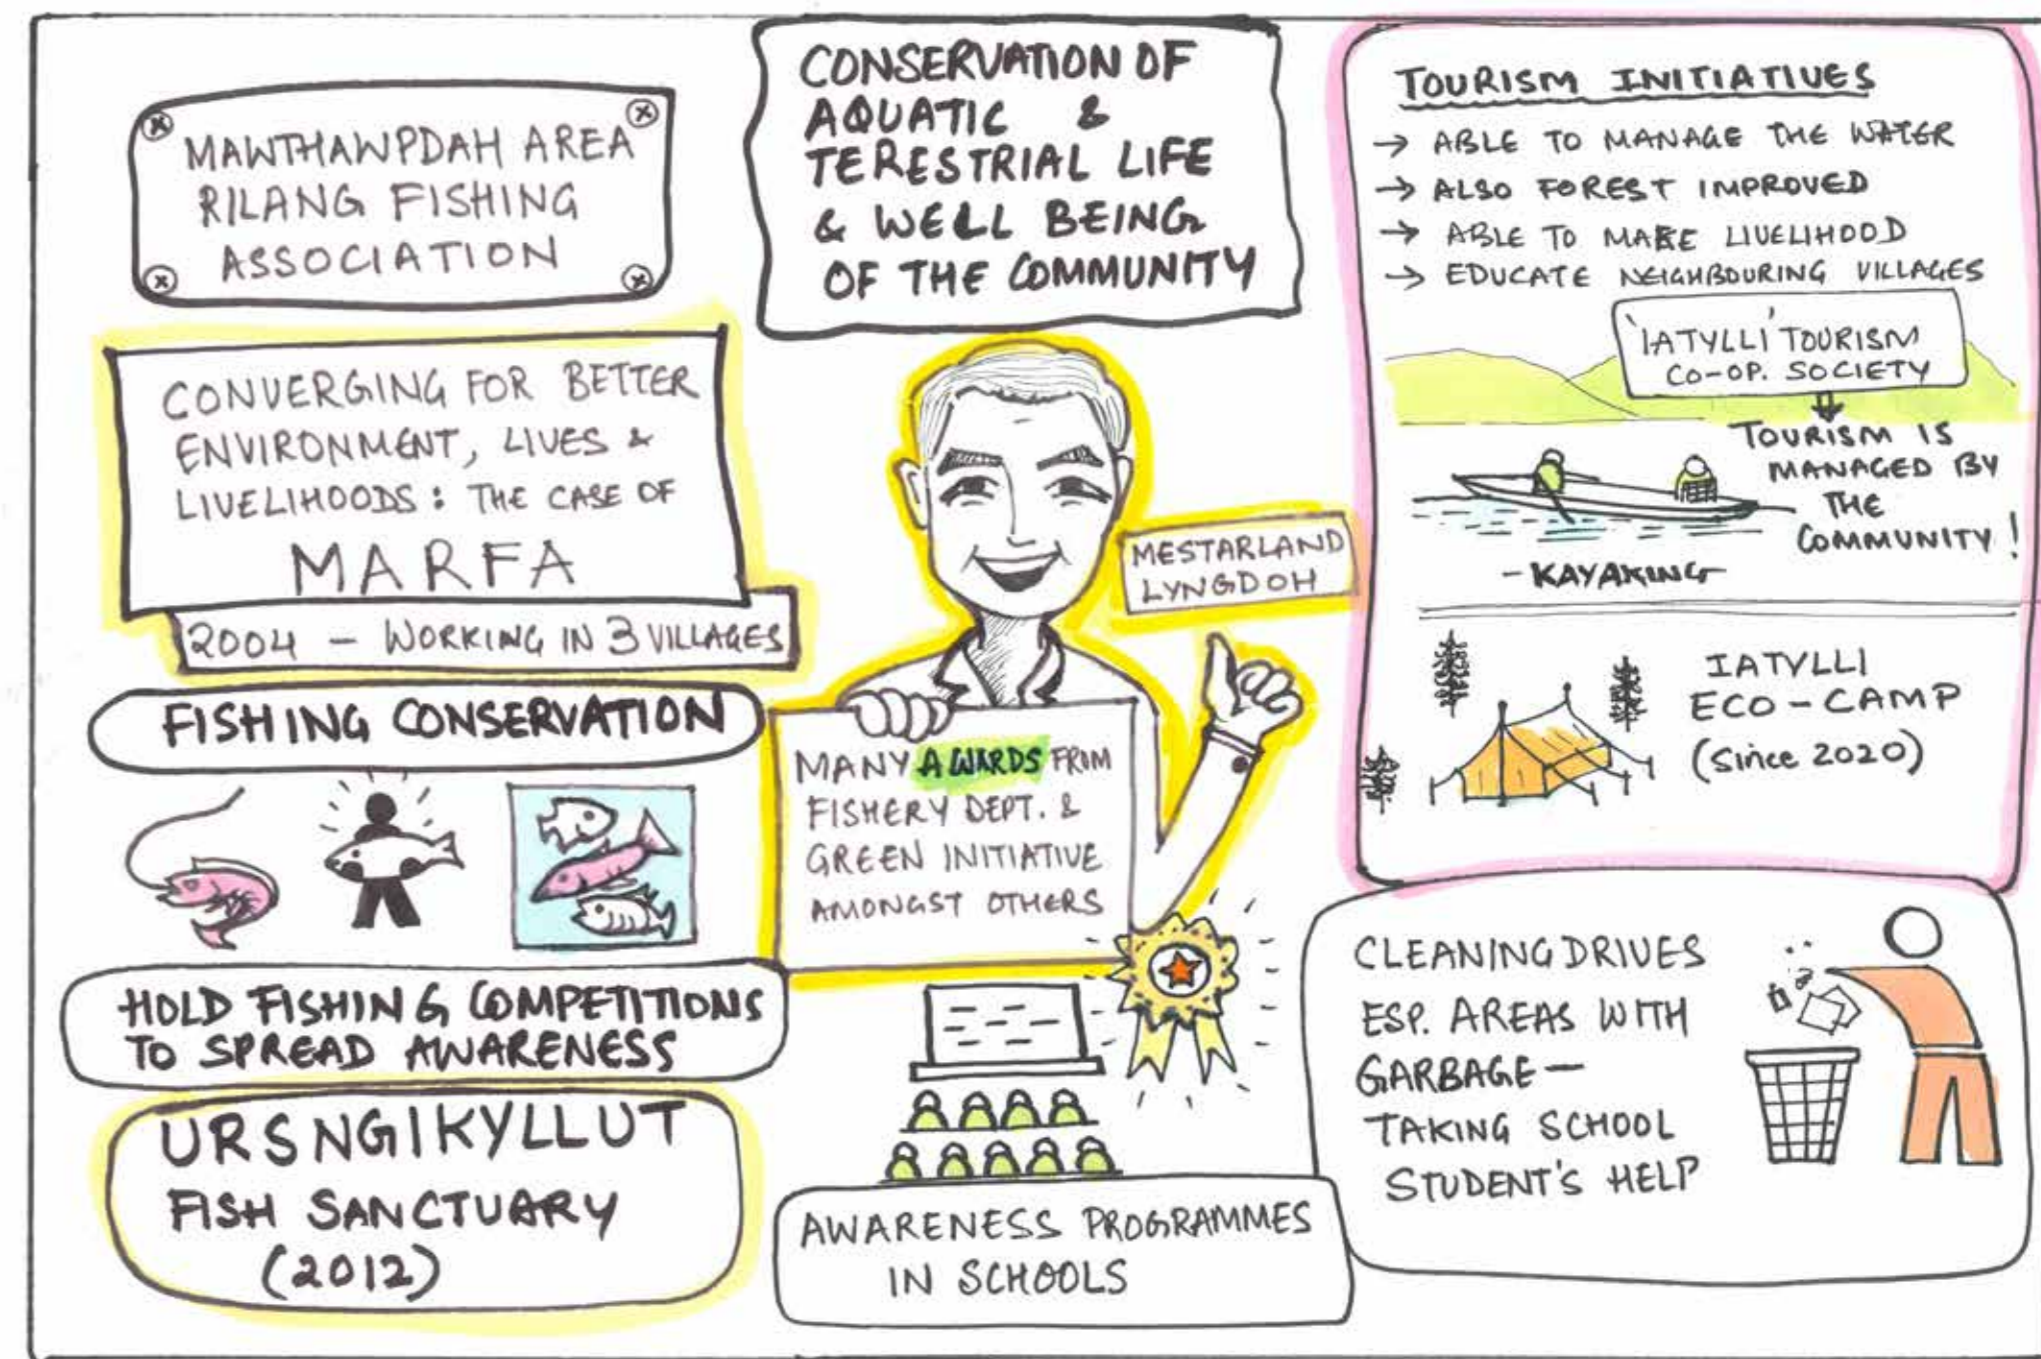 MAWTHAWPDAH AREA
RILANG FISHING
ASSOCIATION
CONVERGING FOR BETTER
ENVIRONMENT, LIVES &
LIVELIHOODS : THE CASE OF
MARFA
2004 - WORKING IN 3 VILLAGES
FISHING CONSERVATION
HOLD FISHING COMPETITIONS
TO SPREAD AWARENESS
URSNGIKYLLUT
FISH SANCTUARY
(2012)
CONSERVATION OF
AQUATIC &
TERESTRIAL LIFE
& WELL BEING
OF THE COMMUNITY
MESTARLAND
LYNGDOH
MANY AWARDS FROM
FISHERY DEPT. &
GREEN INITIATIVE
AMONGST OTHERS
AWARENESS PROGRAMMES
IN SCHOOLS
TOURISM INITIATIVES
→ ABLE TO MANAGE THE WATER
→ ALSO FOREST IMPROVED
→ ABLE TO MAKE LIVELIHOOD
→ EDUCATE NEIGHBOURING VILLAGES
'IATYLLI' TOURISM
CO-OP. SOCIETY
TOURISM IS
MANAGED BY
THE
COMMUNITY!
- KAYAKING
IATYLLI
ECO-CAMP
(Since 2020)
CLEANING DRIVES
ESP. AREAS WITH
GARBAGE —
TAKING SCHOOL
STUDENT'S HELP